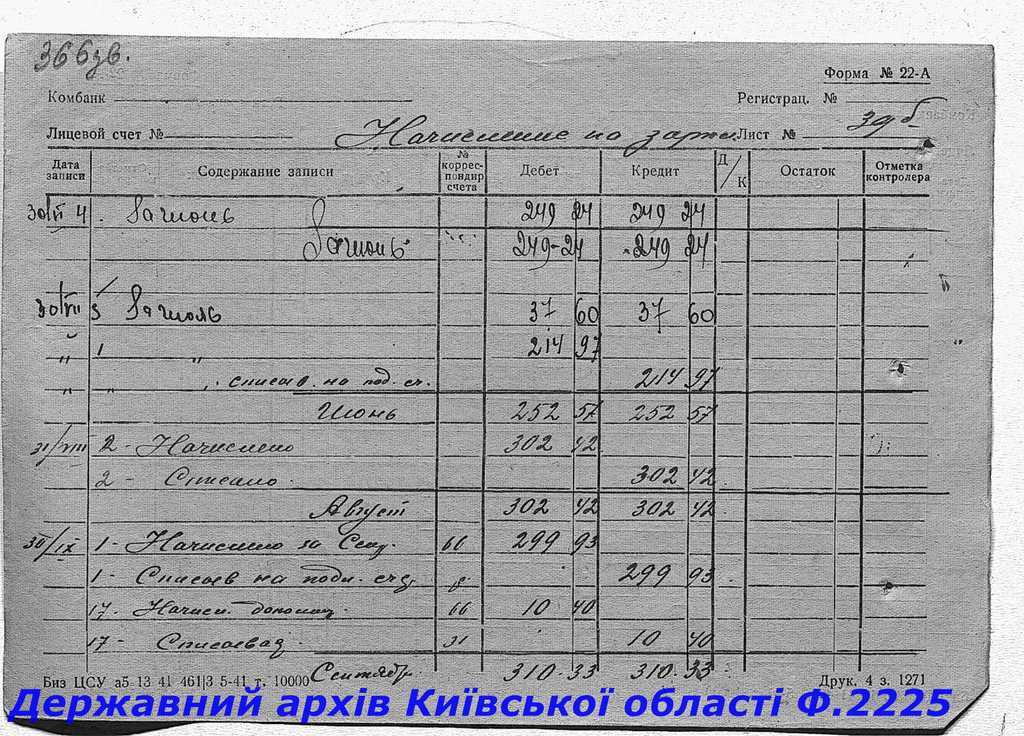 366зв.
Форма № 22-А
Комбанк
Регистрац. №
Лицевой счет № Начисление по зарпл. Лист № 39б
Дата записи Содержание записи № корреспондир счета Дебет Кредит Д/К Остаток Отметка контролера
30/VI 4. За июнь 249 24 249 24
За июнь 249-24 249 24
30/VII 5 За июль 37 60 37 60
" 1 " 214 97
" " " на под. сч. 214 97
Июнь 252 57 252 57
31/VIII 2 - Начислено 302 42
2 - Списано 302 42
Август 302 42 302 42
30/IX 1 - Начислено за Сен. 66 299 93
1 - на подп. 8 299 93
17. Начисл. 66 10 40
17 - 31 10 40
Сентябр 310.33 310.33
Биз ЦСУ а5 13 41 461|3 5-41 т. 10000 Друк. 4 з. 1271
Державний архів Київської області Ф.2225